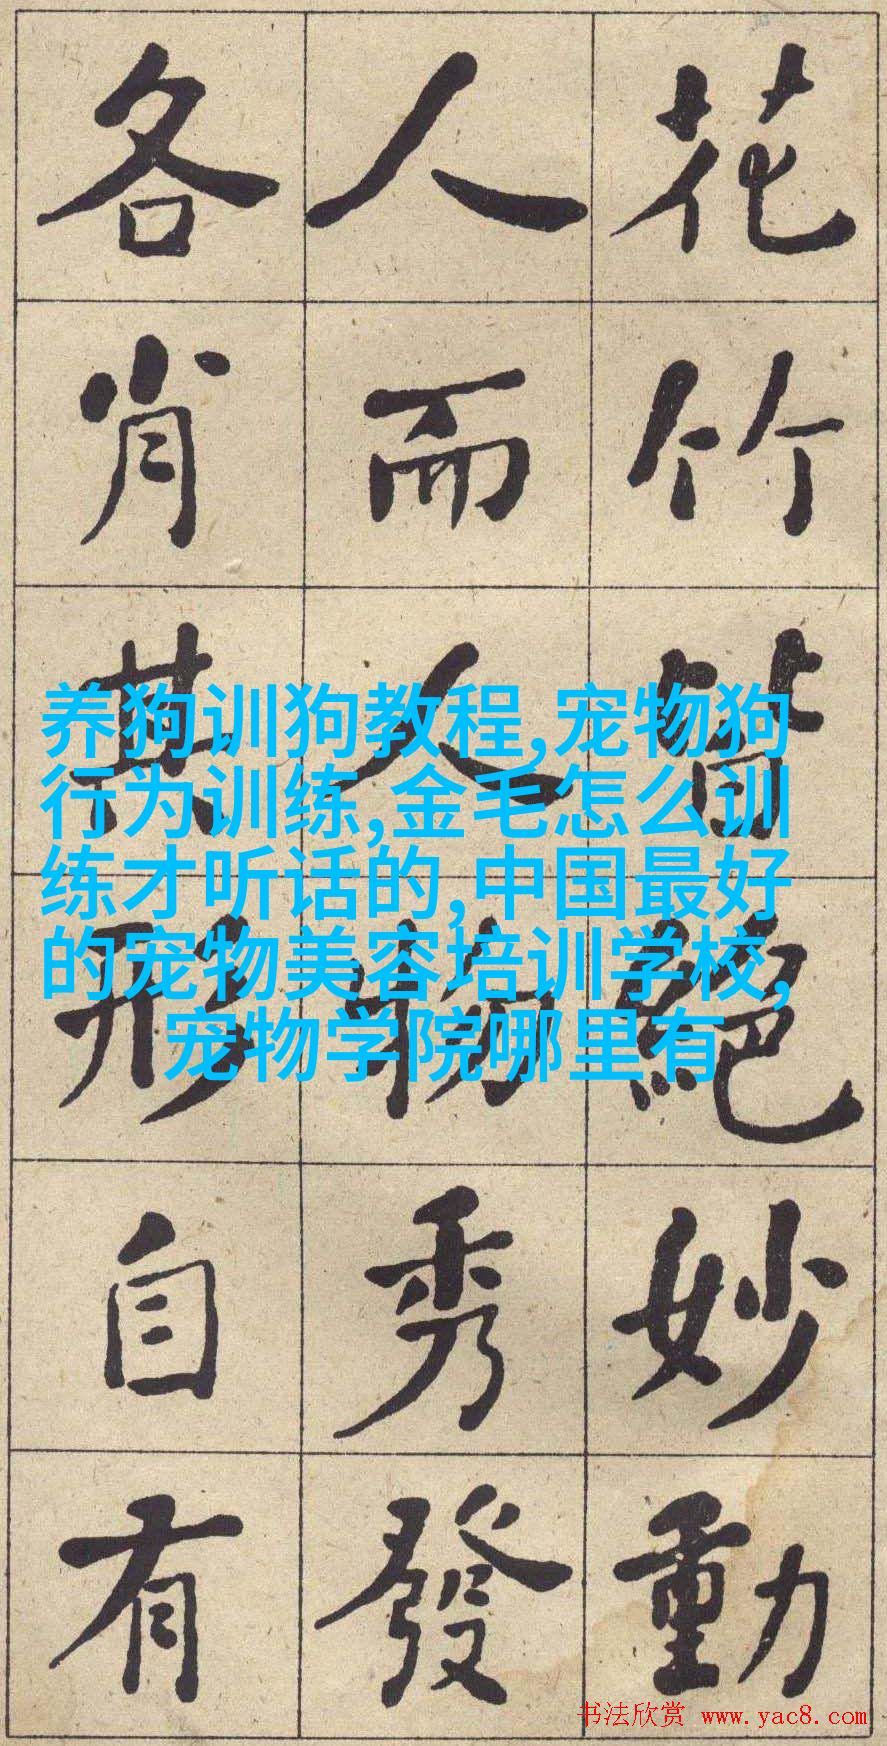 花竹皆絕妙動
人而人物秀發
各肖其形自有
养狗训狗教程,宠物狗
行为训练,金毛怎么训
练才听话的,中国最好
的宠物美容培训学校,
宠物学院哪里有
书法欣赏 www.yac8.com